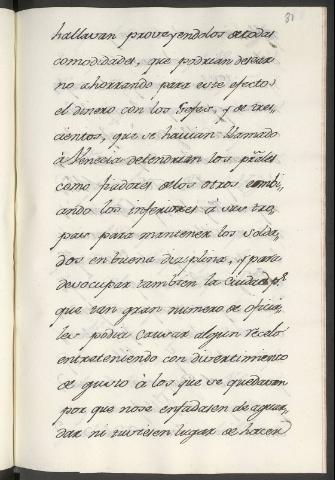 81
hallavan proveyendolos de todas
comodidades, que podrian desear
no ahorrando para este efecto
el dinero con los Gefes, y de tres-
cientos, que se havian llamado
à Venecia detendrian los pples
como fiadores de los otros embi-
ando los inferiores à sus tro-
pas para mantener los solda-
dos en buena disciplina, y para
desocupar tambien la ciudad pr
que tan gran numero de oficia-
les podia causar algun recelo
entreteniendo con divertimento
de gusto à los que se quedavan
por que no se enfadasen de aguar-
dar ni tuviesen lugar de hacer